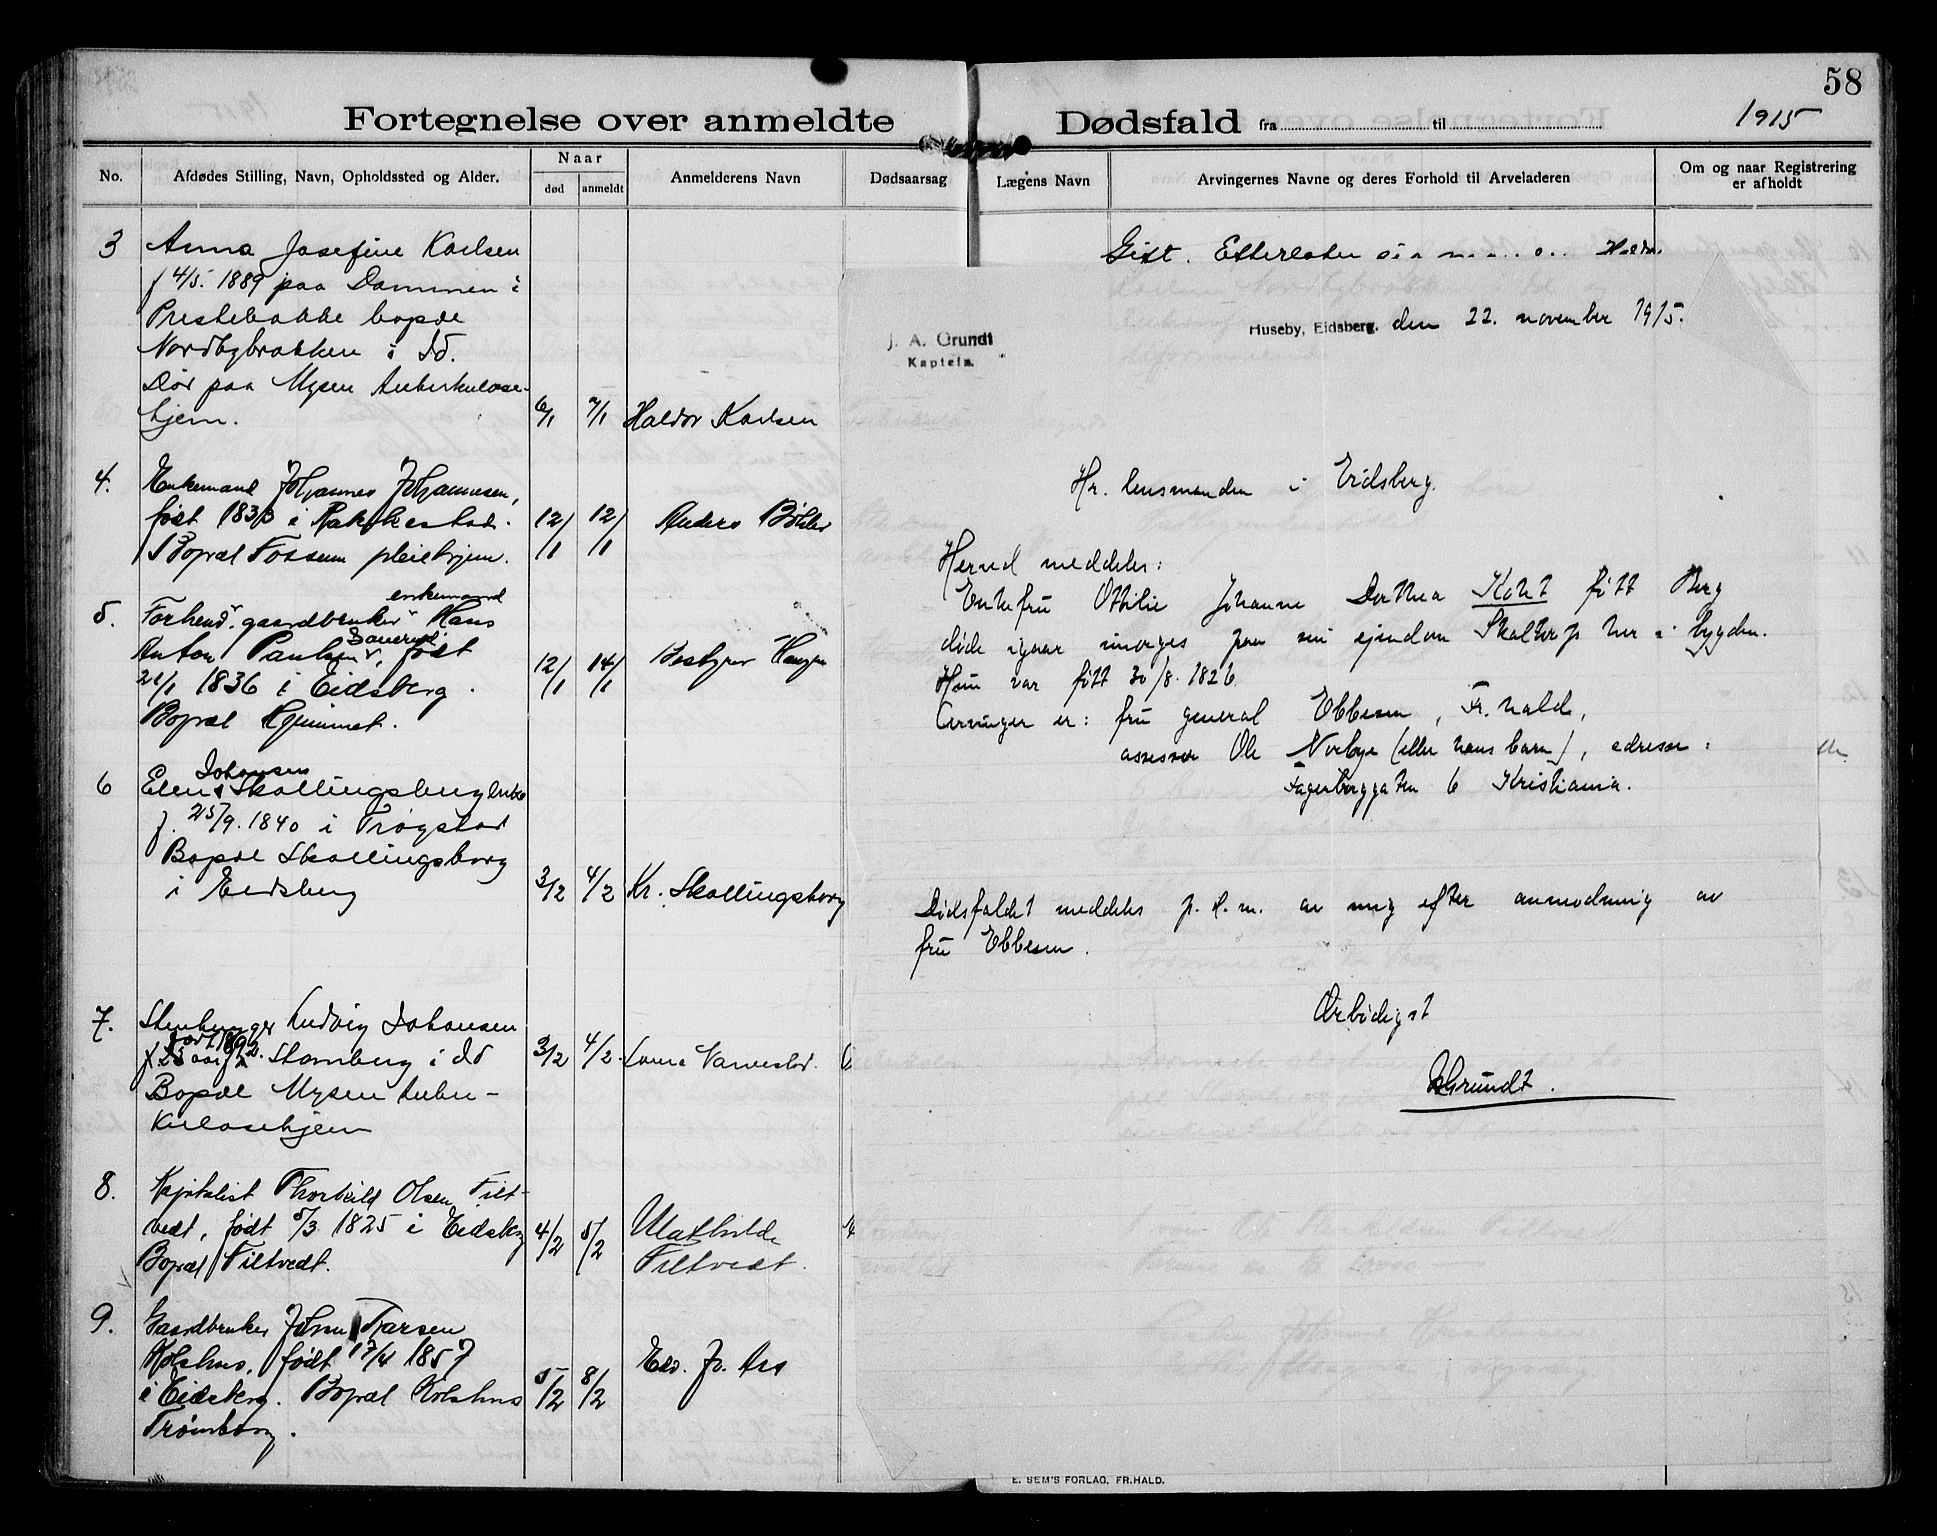 58
Fortegnelse over anmeldte Dødsfald fra til 1915
No.
Afdødes Stilling, Navn, Opholdssted og Alder.
Naar
død
anmeldt
Anmelderens Navn
Dødsaarsag
Lægens Navn
Arvingernes Navne og deres Forhold til Arveladeren
Om og naar Registrering
er afholdt
3 Anna Josefine Karlsen
f 4/5. 1889 paa Dammen i
Prestebakke bopæl
Nordbybrakken i Id.
Død paa Mysen tuberkulose-
hjem. 6/1 7/1 Haldor Karlsen
Gift. Efterlater
4. Enkemand Johannes Johannesen,
født 1833 i Rakkestad. 12/1 12/1 Anders
Bopæl Fossum pleiehjem.
enkemand
5. Forhenv. gaardbruker Hans
Anton Paulsen født
21/1 1836 i Eidsberg. 12/1 14/1 Bestyrer
Bopæl Hjemmet.
Johansen
6 Elen Skallingsberg enke
f. 25/9. 1840 i Trøgstad
Bopæl Skallingsberg
i Eidsberg 3/2 4/2 Kr. Skallingsberg
7. Ludvig Johansen
født 1892. i Id 3/2 4/2.
Bopæl Mysen tuber-
kulosehjem
8. Kapitalist Thorkild Olsen Tilt-
vedt, født 5/3 1825 i Eidsberg 4/2 5/2 Mathilde
Bopæl Tiltvedt. Tiltvedt.
9. Gaardbruker Johan Larsen
Kolshus, født 17/4 1857
i Eidsberg. Bopæl Kolshus 5/2 8/2
Trømborg.
J. A. Grundt
Kaptein.
Huseby, Eidsberg, den 22. november 1915.
Hr. lensmanden i Eidsberg.
Herved meddeles:
Enkefru Ottilie Johanne Dorthea født Berg
døde igaar morges paa sin eiendom her i bygden.
Hun var født 30/8. 1826.
Arvinger er: fru general Ebbesen, Fr.hald,
assessor Ole Norbye (eller hans barn), adresse:
Fagerborggaten 6 Kristiania.
Dødsfaldet meddeles p. d. m. av mig efter anmodning av
fru Ebbesen.
Ærbødigst
JAGrundt.
E. SEM'S FORLAG, FR.HALD.